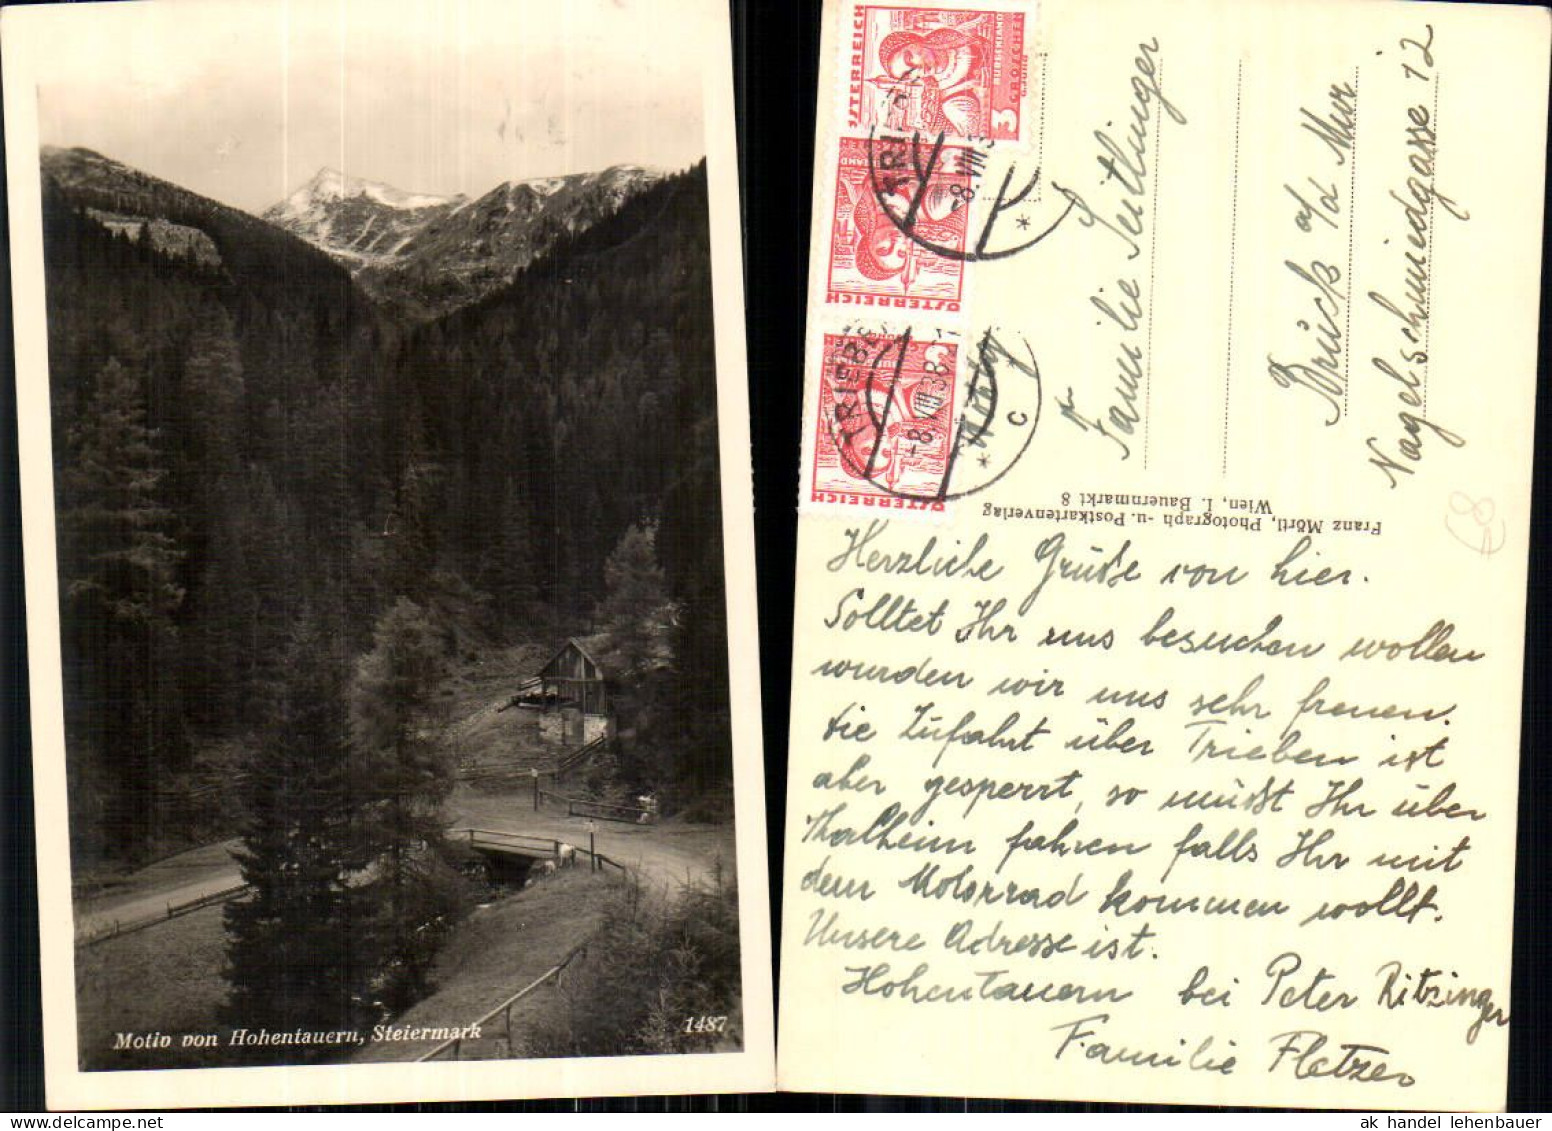 Motiv von Hohentauern, Steiermark
1487
ÖSTERREICH
BURGENLAND
3 GROSCHEN
ÖSTERREICH
ÖSTERREICH
TRIEBEN
-8.VIII.38.-
* C
Familie Seitlinger
Bruck a/d Mur
Nagelschmiedgasse 12
Franz Mörtl, Photograph -u. Postkartenverlag
Wien, I. Bauernmarkt 8
Herzliche Grüße von hier.
Solltet Ihr uns besuchen wollen
wurden wir uns sehr freuen.
die Zufahrt über Trieben ist
aber gesperrt, so müßt Ihr über
Thalheim fahren falls Ihr mit
dem Motorrad kommen wollt.
Unsere Adresse ist.
Hohentauern bei Peter Ritzinger
Familie
ak handel lehenbauer